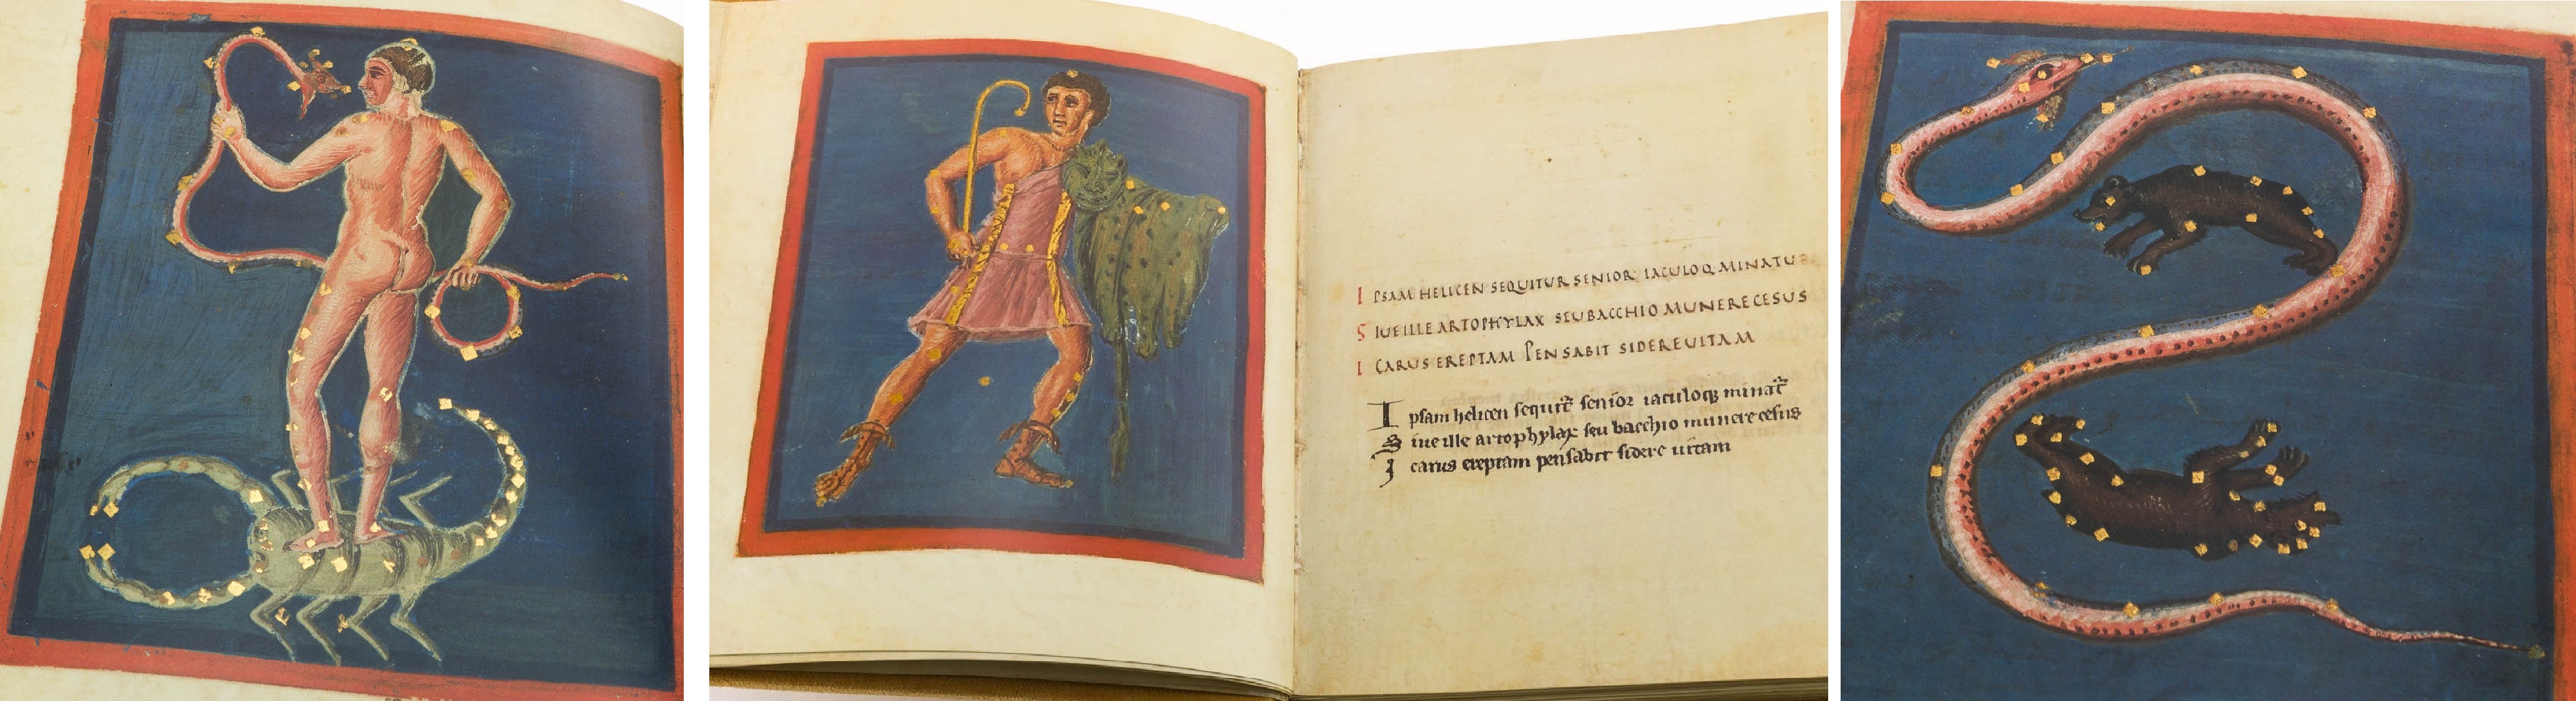 IPSAM HELICEN SEQUITUR SENIOR IACULOQ MINATUR
SIUE ILLE ARTOPHYLAX SEU BACCHIO MUNERE CESUS
ICARUS EREPTAM PENSABIT SIDERE UITAM
Ipsam helicen sequit̃ senior iaculoq; minat̃
Siue ille artophylax seu bacchio munere cesus
Icarus ereptam pensabit sidere uitam